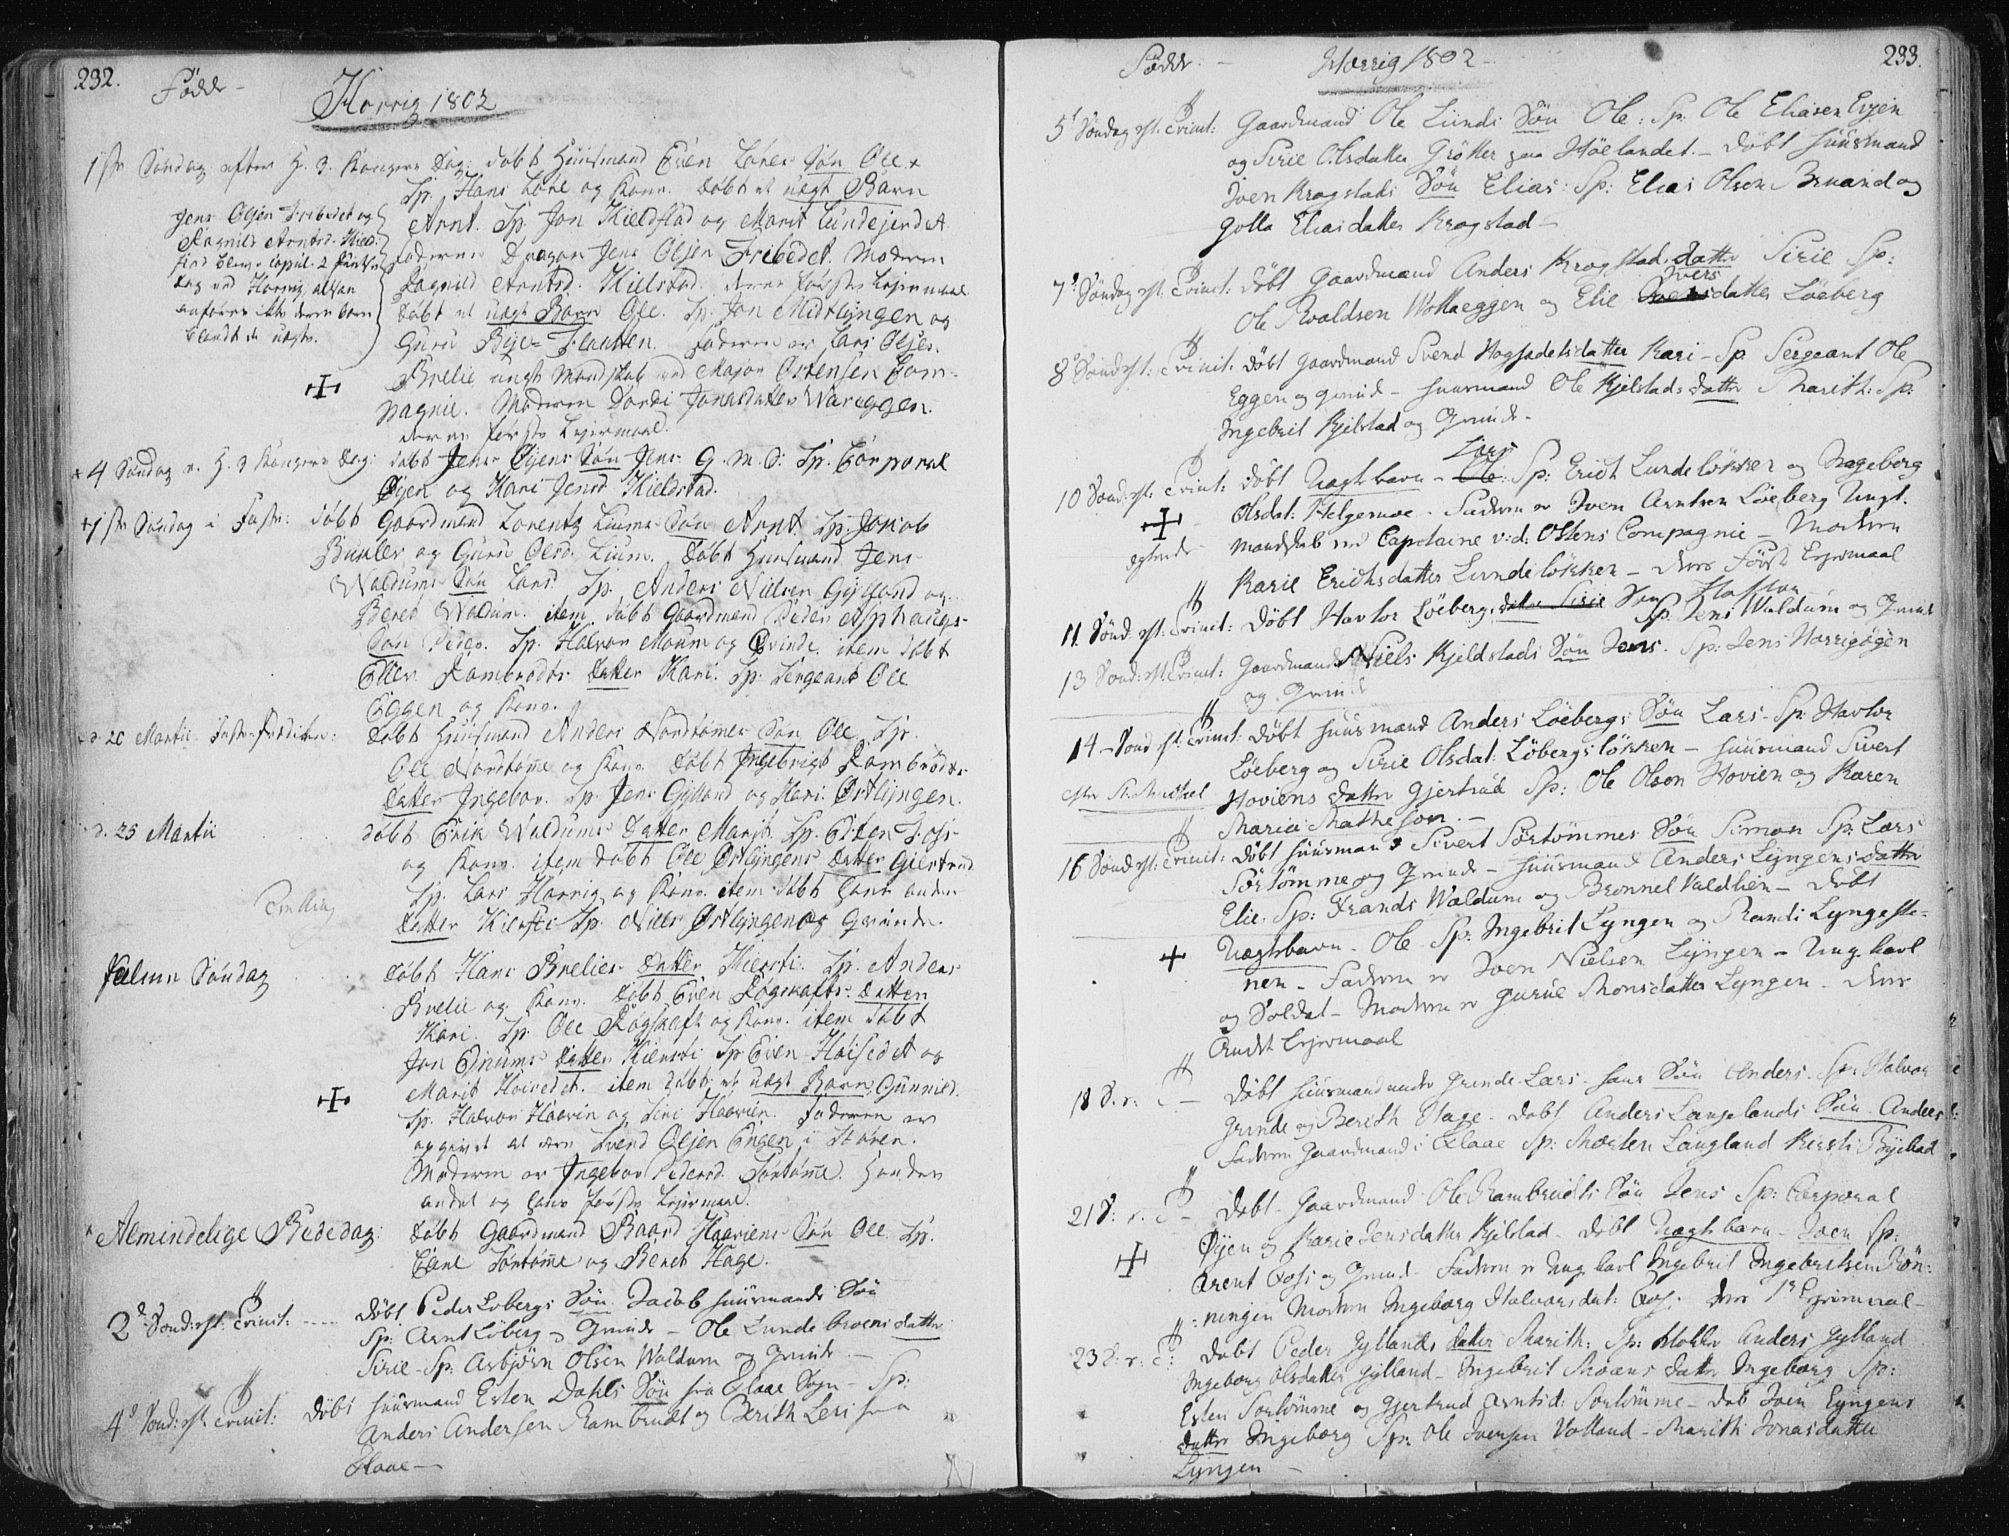 232.
Født
Horrig 1802
1ste Søndag efter H. 3 Kongers Dag: døbt Huusmand Even Lores Søn Ole
Sp. Hans Lore og Kone. døbt et uægt Barn
Arnt. Sp. Jon Kieldstad og Marit Lundejerdet
Faderen Dragon Jens Olsen Fribedet. Moderen
Ragnild Arntsd. Kielstad. deres første Lejermaal
døbt et uægt Barn Ole. Sp. Jon Midtlyngen og
Guru Flaatten. Faderen er Lars Olsen
Brelie ungt Mandskab ved Major Østensen Com-
pagnie. Moderen Dordi Jonasdatter Wareggen.
deres første Lejermaal.
Jens Olsen Fribedet og
Ragnild Arntsd. Kield-
stad blev copul. 2 Pintse
dag ved Horrig, altsaa
anføres ikke deres barn
blandt de uægte.
4 Søndag e. H. 3 Kongers Dag: døbt Jens Øyens Søn Jens G. M. S. Sp. Corporal
Øyen og Kari Jensd. Kieldstad.
1ste Søndag i Faste: døbt Gaardmand Lorentz Liums Søn Arnt. Sp. Jacob
og Guru Olsd. Lium. døbt Huusmand Jens
Waldums Søn Lars. Sp. Anders Nielsen Gylland og
Beret Waldum. item døbt Gaardmand Peder Asphaugs
Søn Peder. Sp. Halvor Moum og Qvinde. item døbt
Eller Rambrødts datter Kari. Sp. Sergeant Ole
Eggen og Kone.
d. 26 Martii Faste-Prædiken: døbt Huusmand Anders Nordtømmes Søn Ole Sp.
Ole Nordtømme og Kone. døbt Ingebrigt Rambrødts
datter Ingebor. Sp. Jens Gylland og Kari Østlyngen.
d. 25 Martii døbt Erik Waldums datter Marit. Sp. Esten Foss
og Kone. item døbt Ole Østlyngens datter Giertrud
Sp. Lars Horrig og Kone. item døbt hans anden
datter Kiersti Sp. Niels Østlyngen og Qvinde.
Tvilling
Palme Søndag døbt Hans Brelies datter Kiersti. Sp. Anders
Brelie og Kone. døbt Even Røgskafts datter
Kari. Sp. Ole Røgskaft og Kone. item døbt
Jon Enums datter Kiersti Sp. Even Høisedet og
Marit Høisedet. item døbt et uægt Barn Gunnild.
Sp. Halvor Haavin og Siri Haavien. Faderen er
opgivet at være Svend Olsen Engen i Støren.
Moderen er Ingebor Pedersd. Sørtømme. Hendes
andet og hans første Lejermaal.
Almindelige Bededag: døbt Gaardmand Baard Haaviens Søn Ole. Sp.
Sørtømme og Beret Hage.
2d Sønd: eft: Trinit: døbt Peder Løbergs Søn Jacob huusmands Søn
Sp: Arnt Löberg og Qvinde – Ole Lundebroens datter
Sirie – Sp: Asbjörn Olsen Waldum og Qvinde –
4d Sønd: eft: Trinit: Döbt huusmand Esten Dahls Søn fra Flaae Sogn – Sp:
Anders Andersen Rambraut og Berith Ler fra
Flaae –
233.
Fødde –
Horrig 1802 –
5t Søndag eft: Trinit: Gaardmand Ole Lunds Søn Ole: Sp: Ole Eliasen Eyen
og Sirie Olsdatter Grötter paa Höelandet. – Döbt Huusmand
Joen Krogstads Søn Elias: Sp: Elias Olsen Bruand og
Golla Eliasdatter Krogstad –
7d Søndag eft: Trinit: Döbt Gaardmand Anders Krogstads datter Sirie Sp:
Ole Roaldsen Wottaeggen og Elie Ivers datter Löeberg
8d Sønd eft: Trinit: döbt Gaardmand Svend Hogsadets datter Kari – Sp Sergeant Ole
Eggen og Qvind – Huusmand Ole Kjelstads datter Marith: Sp:
Ingebrit Kjelstad og Qvinde –
10 Sønd: eft: Trinit: döbt Uægte barn – Ole Lars: Sp: Erich Lundelökker og Ingeborg
Olsdat: Helgemoe. Faderen er Joen Arntsen Löeberg Ungt
Mandskab ved Capitaine v: d: Ostens Compagnie – Moderen
Karie Erichsdatter Lundelökken – deres Först Lejermaal
11 Sønd: eft: Trinit: Döbt Havlor Löebergs datter Sirie Søn Haftor
Sp: Jens Waldum og Qvind
13 Sønd: eft: Trinit: Gaardmand Niels Kjeldstads Søn Jens. Sp: Jens Horrigögen
og Qvinde
14 – Sønd eft: Trinit: Döbt huusmand Anders Löebergs Søn Lars – Sp: Havlor
Löeberg og Sirie Olsdat: Löbergslökken – huusmand Sivert
Hoviens datter Gjertrud Sp: Ole Olsen Hovien og Karen
Maria Matheson. –
16 Sønd eft: Trinit: Döbt huusmand Sivert Sörtömmes Søn Simon Sp: Lars
Sörtömme og Qvinde – huusmand Anders Lyngens datter
Elie. Sp: Frands Waldum og Brønnel Valdlien – Döbt
Uægte barn – Ole – Sp: Ingebrit Lyngen og Randi Lyngeste-
nen – Faderen er Joen Nielsen Lyngen – Ungkarl
og Soldat – Moderen er Gurue Monsdatter Lyngen – deres
Andet Lejermaal
18 S. e. T – Döbt huusmand under Grinde Lars hans Søn Anders – Sp: Halvor
Grinde og Berith Hage – Døbt Anders Langelands Søn Anders
Faderen Gaardmand i Flaae Sp: Morten Langland Kirsti Bøjestad
21 S: e. T – Döbt Gaardmand Ole Rambrudts Søn Jens Sp: Corporal
Öijen og Karie Jensdatter Kjelstad – Döbt Uægte barn – Joen Sp:
Arent Foss og Qvind – Faderen er Ungkarl Ingebrit Ingebritsen Rön-
ningen Moderen Ingeborg Halvorsdat: Foss. deres 1te Lejermaal –
23 S: e: T: Döbt Peder Gyllands datter Marith: Sp: Klokker Anders Gylland
Ingeborg Olsdatter Gylland – Ingebrit Moens datter Ingeborg Sp:
Esten Sørtömme og Gjertrud Arntsd: Sørtömme – Döbt Joen Lyngens
datter Ingeborg Sp: Ole Iversen Volland – Marith Jonasdatter
Lyngen –